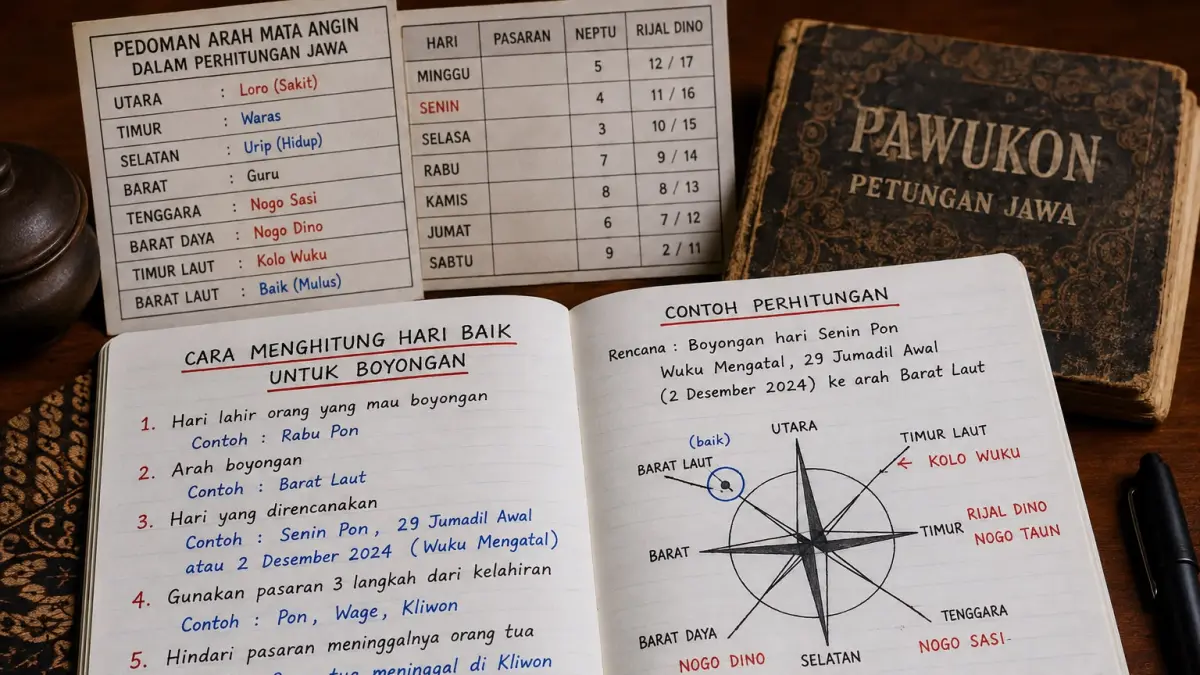 PEDOMAN ARAH MATA ANGIN
DALAM PERHITUNGAN JAWA
UTARA : Loro (Sakit)
TIMUR : Waras
SELATAN : Urip (Hidup)
BARAT : Guru
TENGGARA : Nogo Sasi
BARAT DAYA : Nogo Dino
TIMUR LAUT : Kolo Wuku
BARAT LAUT : Baik (Mulus)
HARI PASARAN NEPTU RIJAL DINO
MINGGU 5 12 / 17
SENIN 4 11 / 16
SELASA 3 10 / 15
RABU 7 9 / 14
KAMIS 8 8 / 13
JUMAT 6 7 / 12
SABTU 9 2 / 11
PAWUKON
PETUNGAN JAWA
CARA MENGHITUNG HARI BAIK
UNTUK BOYONGAN
1. Hari lahir orang yang mau boyongan
Contoh : Rabu Pon
2. Arah boyongan
Contoh : Barat Laut
3. Hari yang direncanakan
Contoh : Senin Pon, 29 Jumadil Awal
atau 2 Desember 2024 (Wuku Mengatal)
4. Gunakan pasaran 3 langkah dari kelahiran
Contoh : Pon, Wage, Kliwon
5. Hindari pasaran meninggalnya orang tua
tua meninggal di Kliwon
CONTOH PERHITUNGAN
Rencana : Boyongan hari Senin Pon
Wuku Mengatal, 29 Jumadil Awal
(2 Desember 2024) ke arah Barat Laut
UTARA
(baik)
BARAT LAUT
TIMUR LAUT
← KOLO WUKU
BARAT
TIMUR
RIJAL DINO
NOGO TAUN
BARAT DAYA
NOGO DINO
SELATAN
TENGGARA
NOGO SASI-